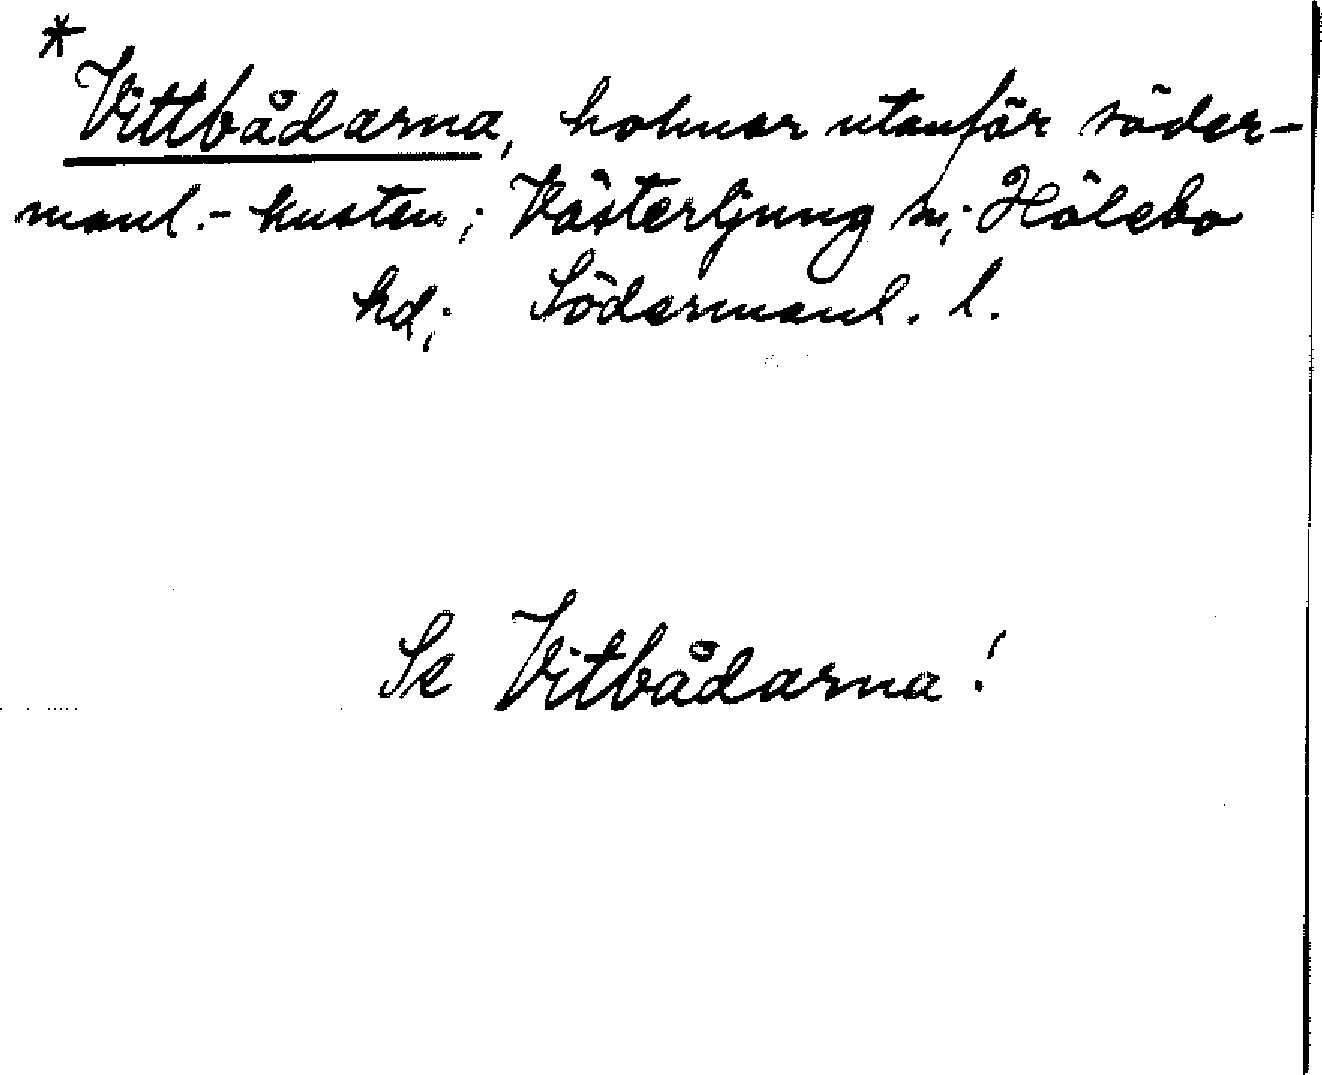 *
Vittbådarna, holmar utanför söder-
manl.-kusten; Västerljung sn; Hölebo
hd; Södermanl. l.
Se Vitbådarna!